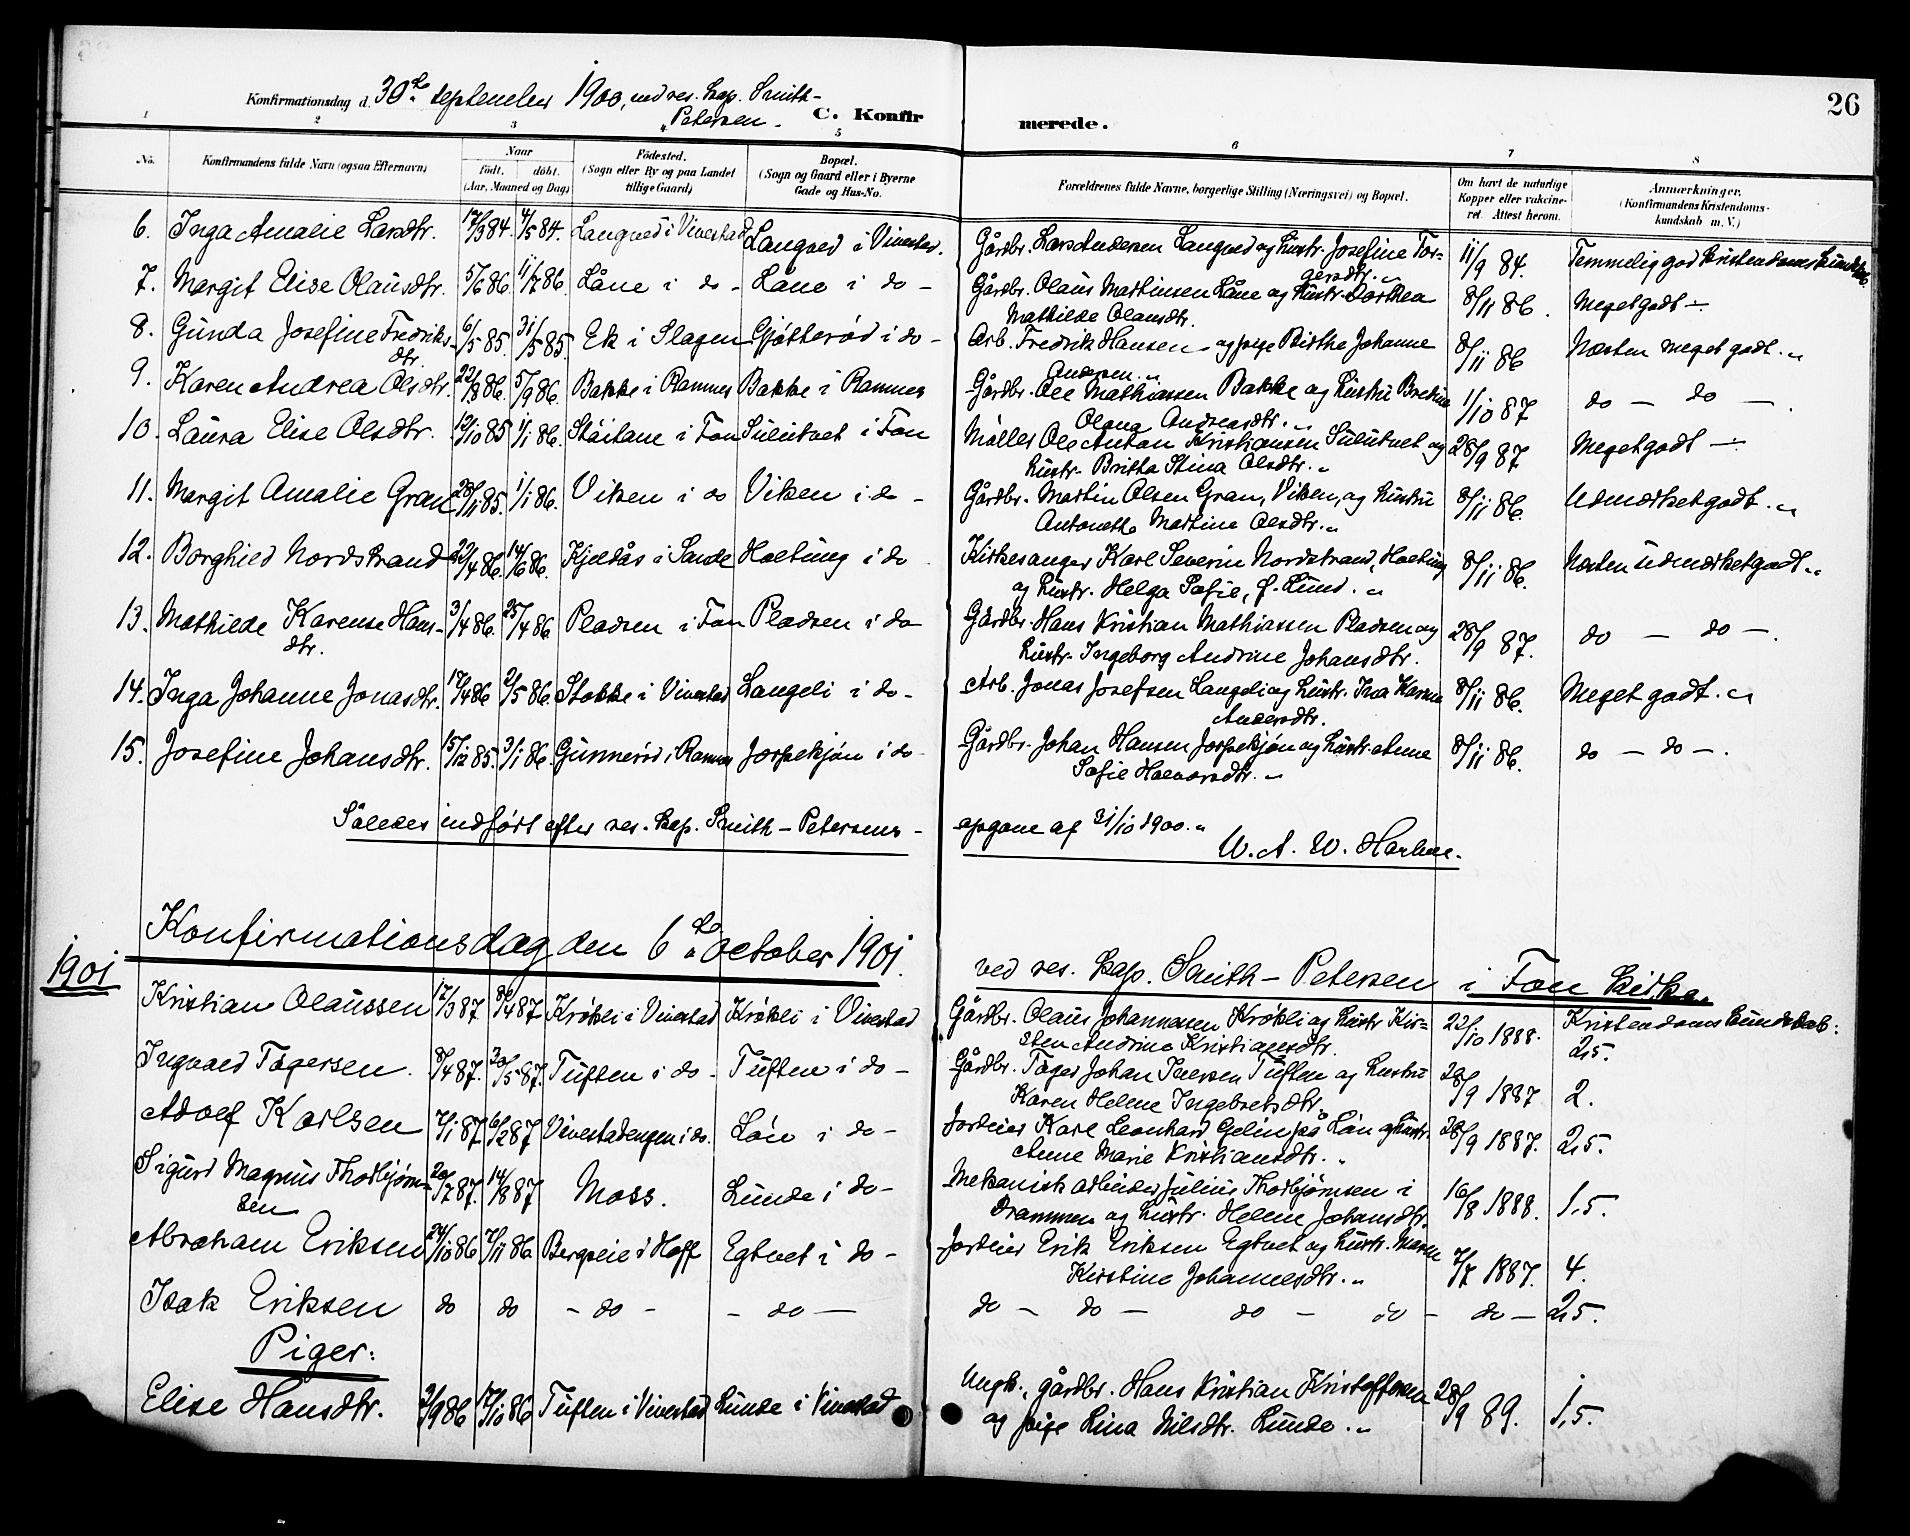 26
Konfirmationsdag d. 30te september 1900, ved res. kap. Smith-
Petersen.
C. Konfir
merede.
1 2 3 5 6 7 8
No. Konfirmandens fulde Navn (ogsaa Efternavn) Naar Födested. Bopæl. Forældrenes fulde Navne, borgerlige Stilling (Næringsvei) og Bopæl. Om havt de naturlige Anmærkninger.
födt. döbt. (Sogn eller By og paa Landet (Sogn og Gaard eller i Byerne Kopper eller vakcine- (Konfirmandens Kristendoms-
(Aar, Maaned og Dag) tillige Gaard) Gade og Hus-No. ret. Attest herom. kundskab m. V.)
6. Inga Amalie Larsdtr. 17/3 84. 4/5 84. Langved i Vivestad Langved i Vivestad. Gårdbr. Lars Andersen Langved og hustr. Josefine Tor- 11/9 84. Temmelig god kristendomskundskab.
gersdtr. „
7. Margit Elise Olausdtr. 5/6 86. 11/7 86. Låne i do - Låne i do - Gårdbr. Olaus Martinsen Låne og hustr. Dorthea 8/11 86. Meget godt -
Mathilde Olausdtr.
8. Gunda Josefine Fredriks- 6/5 85. 31/5 85. Ek i Slagen Gjøtterød i do - Arb. Fredrik Hansen og pige Birthe Johanne 8/11 86 Næsten meget godt. „
dtr. Andersen. „
9. Karen Andrea Olsdtr. 22/8 86. 5/9 86. Bakke i Ramnes Bakke i Ramnes Gårdbr. Ole Mathiassen Bakke og hustru Bredine 1/10 87 do - do -.
Olava Andreasdtr. „
10. Laura Elise Olsdtr. 12/10 85 1/1 86. i Fon Sulutvet i Fon Møller Ole Anton Kristiansen Sulutvet og 28/9 87 Meget godt -
hustr. Britha Stina Olsdtr. „
11. Margit Amalie Gran 28/11 85. 1/1 86. Viken i do Viken i do - Gårdbr. Martin Olsen Gran, Viken, og hustru 8/11 86. Udmærket godt. „
Antonette Martine Olsdtr. „
12. Borghild Nordstrand 22/4 86. 14/6 86. Kjeldås i Sande Holtung i do Kirkesanger Karl Severin Nordstrand, Holtung 8/11 86. Næsten udmærket godt „
og hustr. Helga Sofie, f. Lund. „
13. Mathilde Karense Hans- 3/4 86. 25/4 86 Pladsen i Fon Pladsen i do Gårdbr. Hans Kristian Mathiassen Pladsen og 28/9 87. do - do -.
dtr. hustr. Ingeborg Andrine Johansdtr.
14. Inga Johanne Jonasdtr. 17/4 86 2/5 86. Stokke i Vivestad Langeli i do - Arb. Jonas Josefsen Langeli og hustr. Ina Karine 8/11 86. Meget godt. „
Andersdtr.
15. Josefine Johansdtr. 15/12 85. 3/1 86. Gunnerød i Ramnes Jorpekjøn i do - Gårdbr. Johan Hansen Jorpekjøn og hustr. Anne 8/11 86. do - do -.
Sofie Halvorsdtr. „
Således indført efter res. kap. Smith-Petersens - opgave af 31/10 1900. „
W. A. W. Harbue.
Konfirmationsdag den 6te october 1901.
1901
ved res. kap. Smith-Petersen i Fon kirke.
Kristian Olaussen 17/3 87 8/4 87 Krøkli i Vivestad Krøkli i Vivestad Gårdbr. Olaus Johannesen Krøkli og hustr. Kir- 22/10 1888. Kristendomskundskab:
sten Andrine Kristiansdtr. 2,5.
Ingvald Tågersen. 8/4 87. 20/5 87. Tuften i do - Tuften i do - Gårdbr. Tåger Johan Iversen Tuften og hustru 28/9 1887 2.
Karen Helene Ingebretsdtr.
Adolf Karlsen 7/1 87 6/2 87 Vivestadengen i do. Løn i do - Jordeier Karl Leonhard Gelin på Løn og hustr. 28/9 1887. 2,5.
Anne Marie Kristiansdtr. „
Sigurd Magnus Thorbjørn- 20/7 87. 14/8 87 Moss. Lunde i do - Mekanisk arbeider Julius Thorbjørnsen i 16/8 1888. 1,5.
sen Drammen og hustr. Helene Johansdtr.
Abraham Eriksen 24/10 86 7/11 86 Bergseie i Hoff Egtvet i do - Jordeier Erik Eriksen Egtvet og hustr. Maren 7/8 1887. 4.
Kirstine Johannesdtr. „
Isak Eriksen do do - do - - do - do - do - do - do - do - 2,5.
Piger:
Elise Hansdtr. 2/9 86 17/10 86 Tuften i Vivestad Lunde i Vivestad Ungk., gårdbr. Hans Kristian Kristoffersen 28/9 89. 1,5.
og pige Lina Nilsdtr. Lunde. „